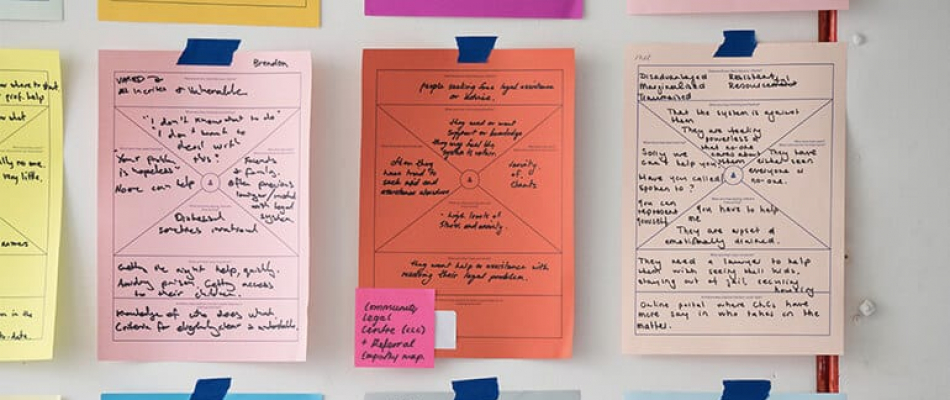 where to start
prof. help
what
ally no one.
very little.
answers
in the
Brendan
"I don't know what to do"
"I don't want to
deal with
this"
Your problem
is hopeless
None can help
Friends
+ family.
Often previous
with legal
system
Distressed
sometimes irrational
Getting the right help, quickly.
Avoiding prison. Getting access
to their children.
Knowledge of who does what.
Criteria for eligibility clear + understandable.
people seeking free legal assistance
or advice.
They need or want
support or knowledge
They may feel the
system is unfair.
Often they
have tried to
seek aid and
assistance elsewhere
Variety
of
clients
• high levels of
stress and anxiety.
They want help or assistance with
resolving their legal problem.
Community
Legal
Centre (CLC)
+ Referral
Empathy map.
Disadvantaged Resistant
Marginalised Resourceful
Traumatised
That the system is against
them
They are feeling
powerless &
that no-one
cares about
them
Sorry we
can't help you
Have you called
spoken to?
They have
either seen
everyone or
no-one.
You can
represent
yourself
You have to help
me
They are upset &
emotionally drained.
They need a lawyer to help
them with seeing their kids,
staying out of jail, securing
housing
Online portal where CLCs have
more say in who takes on the
matter.